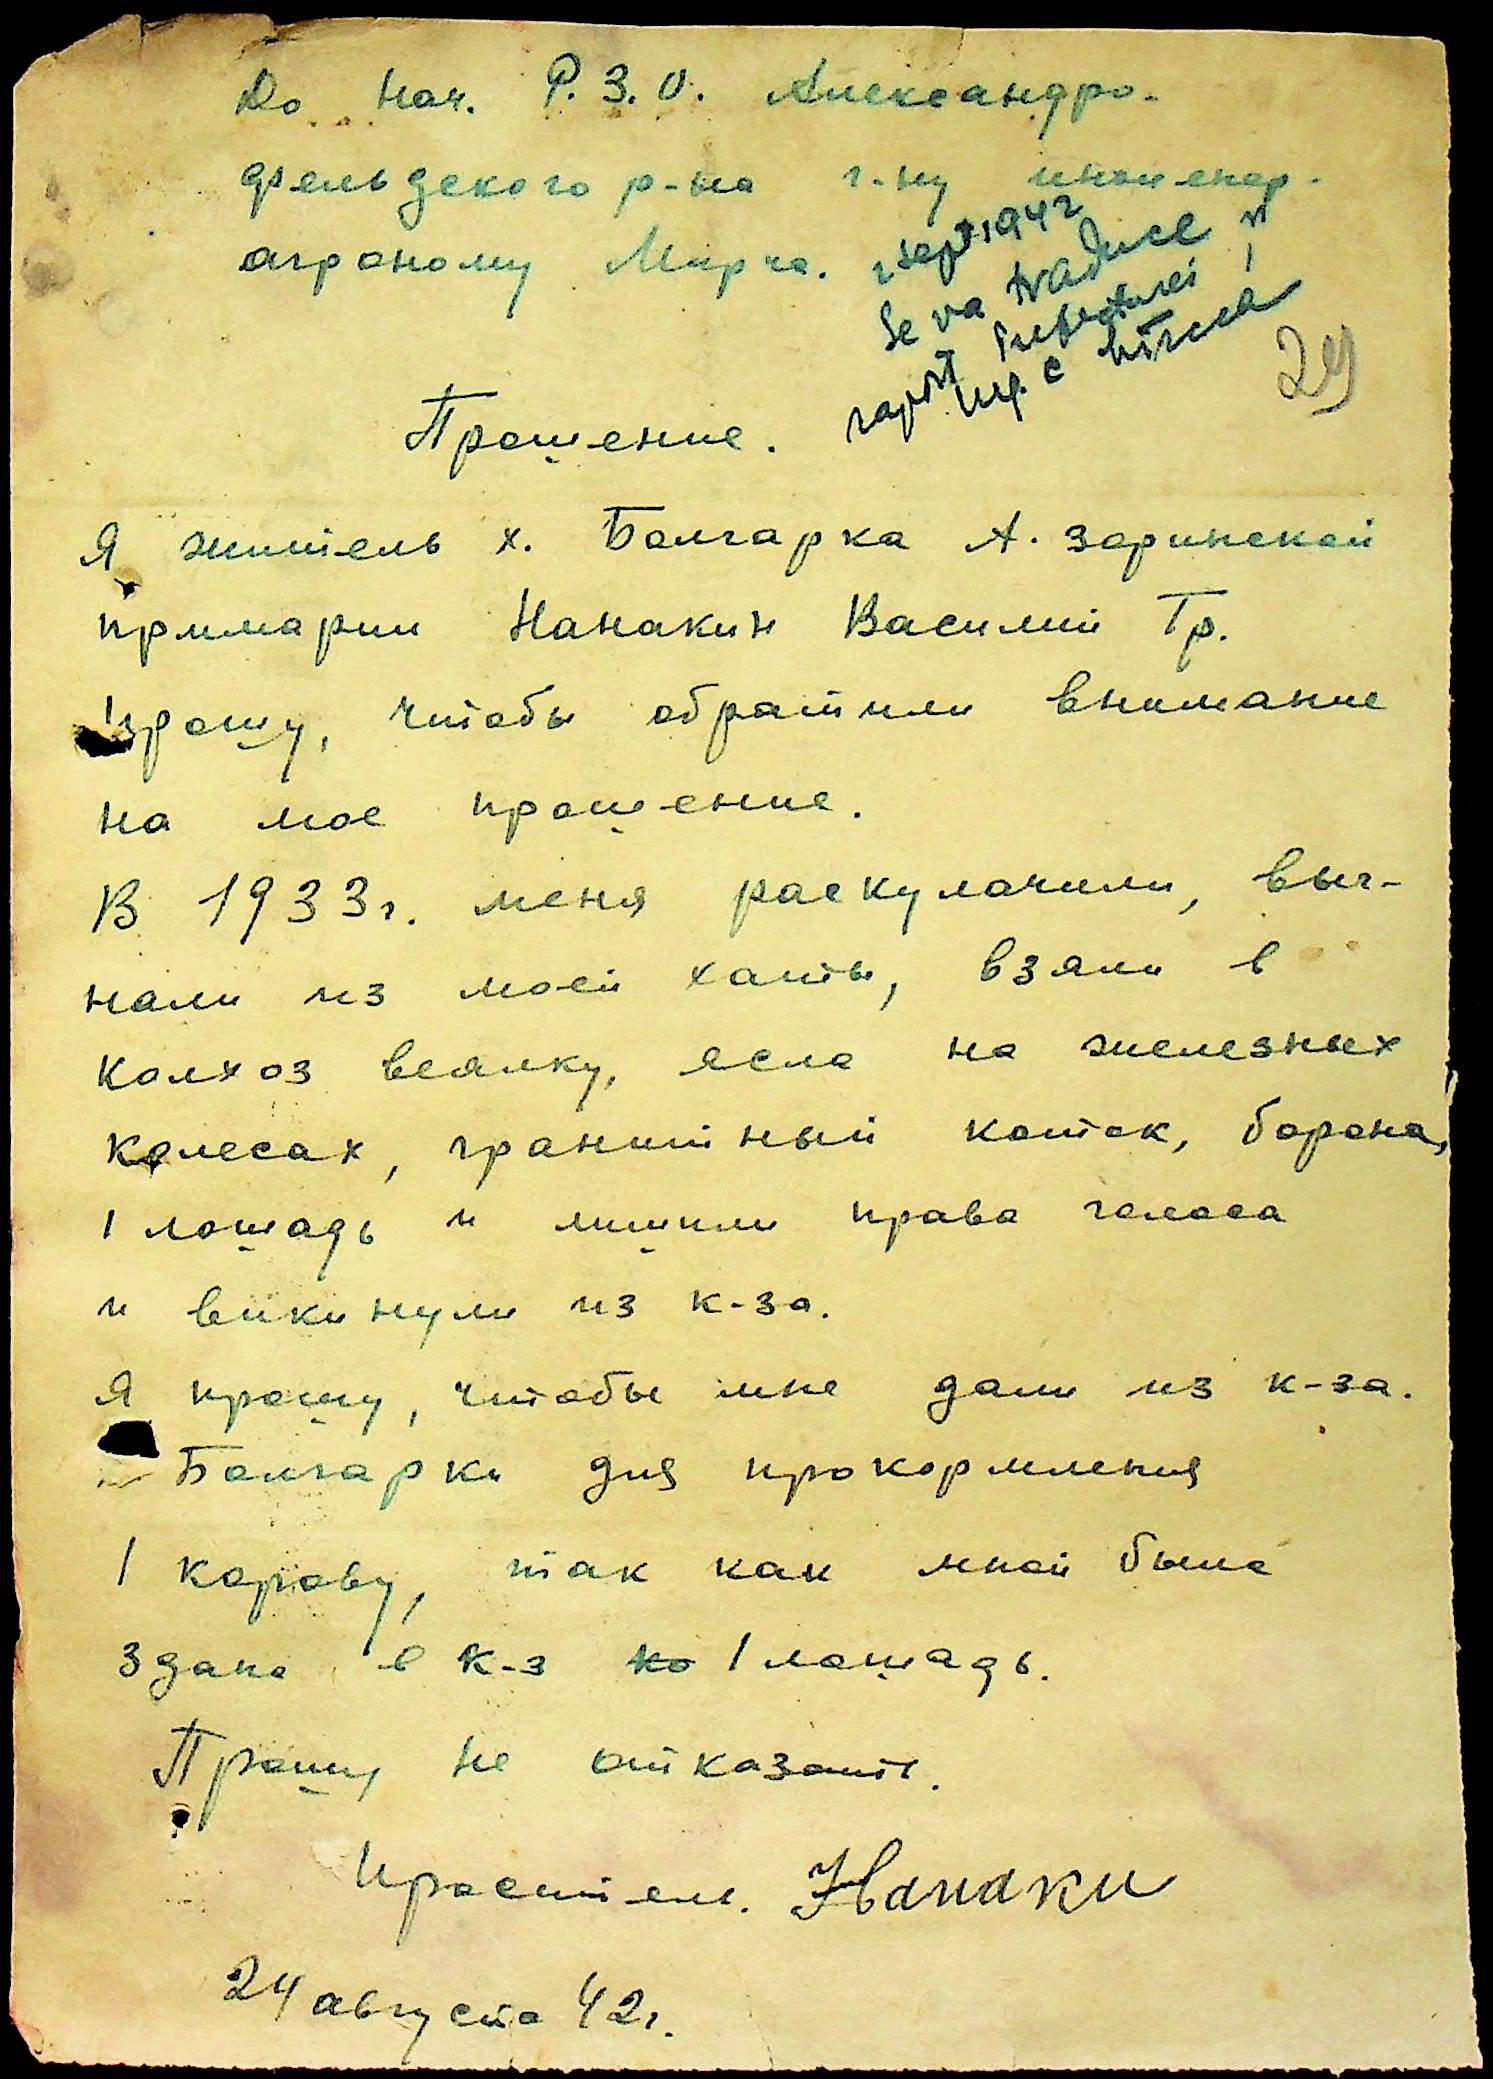 До Нач. Р.З.О. Александро-
фельдского р-на г-ну инженер-
агроному Мирча.
1 sept 1942
Se va traduce și
raport Prefecturei
ing. C Mircea
29
Прошение.
Я житель х. Болгарка А. заринской
примарии Нанакин Василий Гр.
прошу, чтобы обратили внимание
на мое прошение.
В 1933г. меня раскулачили, выг-
нали из моей хаты, взяли в
колхоз веялку, ясла на железных
колесах, гранитный каток, борона,
1 лошадь и лишили права голоса
и викинули из к-за.
Я прошу, чтобы мне дали из к-за.
Болгарки для прокормления
1 корову, так как мной была
здана в к-з ко 1 лошадь.
Прошу не отказать.
Проситель. Нанаки
24 августа 42г.